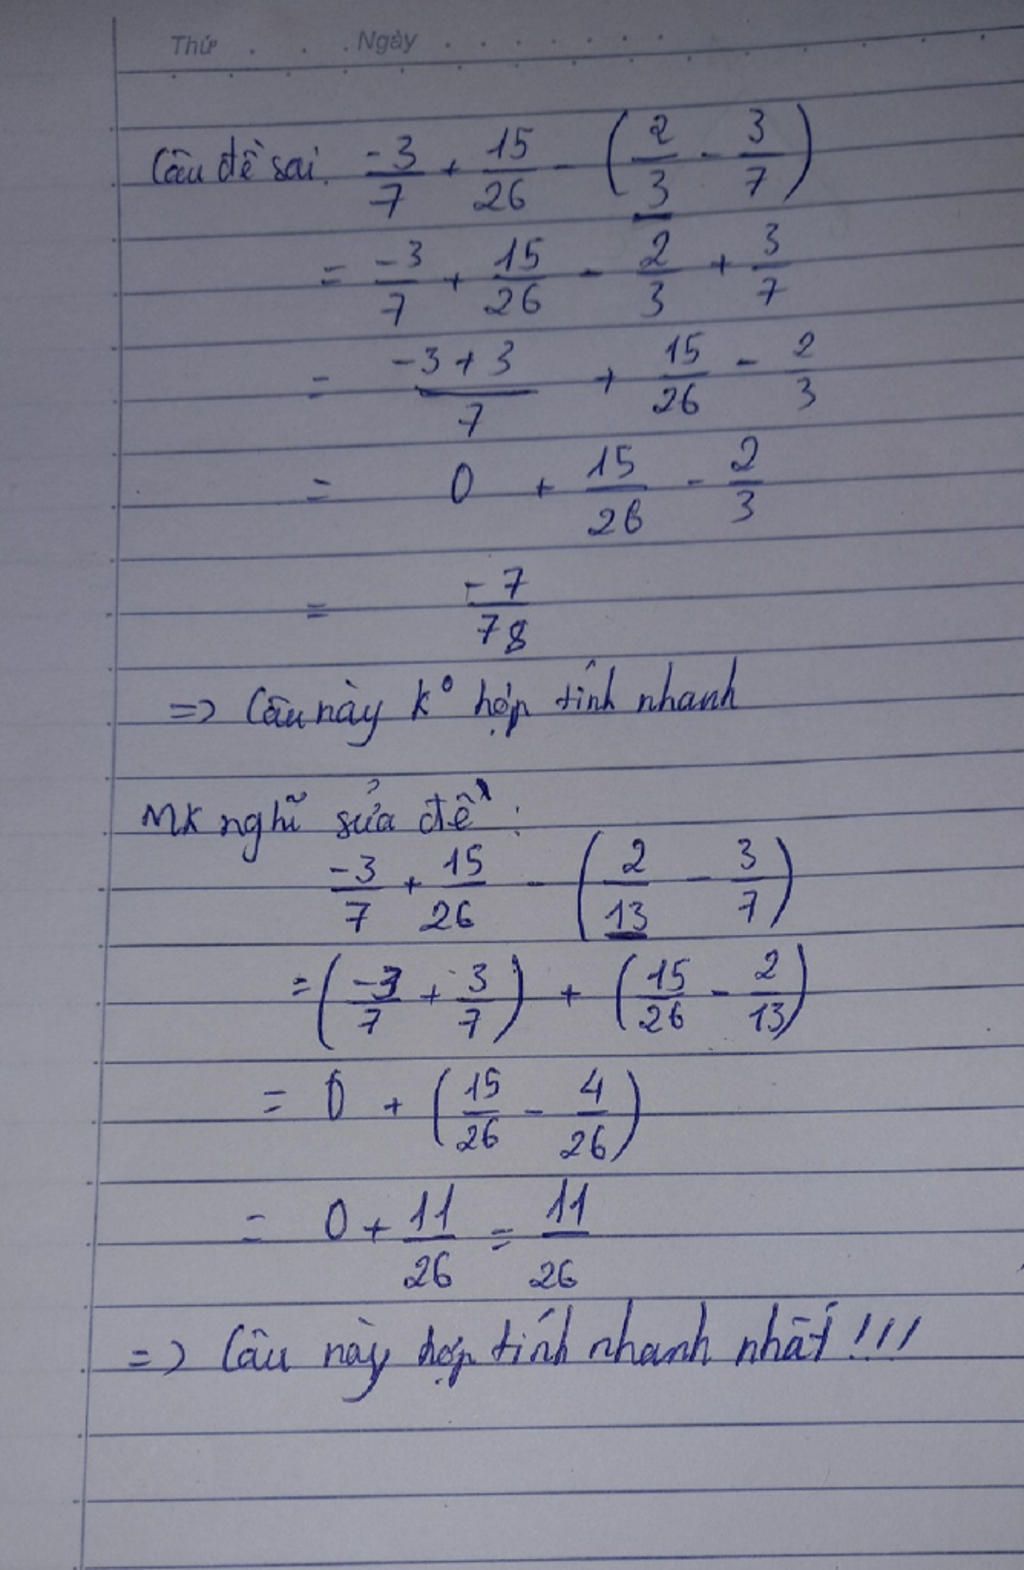 Thứ . . . Ngày . . . . . . . .
Câu đề sai. -3/7 + 15/26 - (2/3 - 3/7)
= -3/7 + 15/26 - 2/3 + 3/7
= (-3+3)/7 + 15/26 - 2/3
= 0 + 15/26 - 2/3
= -7/78
=> Câu này k° hợp tính nhanh
MK nghĩ sửa đề :
-3/7 + 15/26 - (2/13 - 3/7)
= (-3/7 + 3/7) + (15/26 - 2/13)
= 0 + (15/26 - 4/26)
= 0 + 11/26 = 11/26
=> Câu này hợp tính nhanh nhất !!!